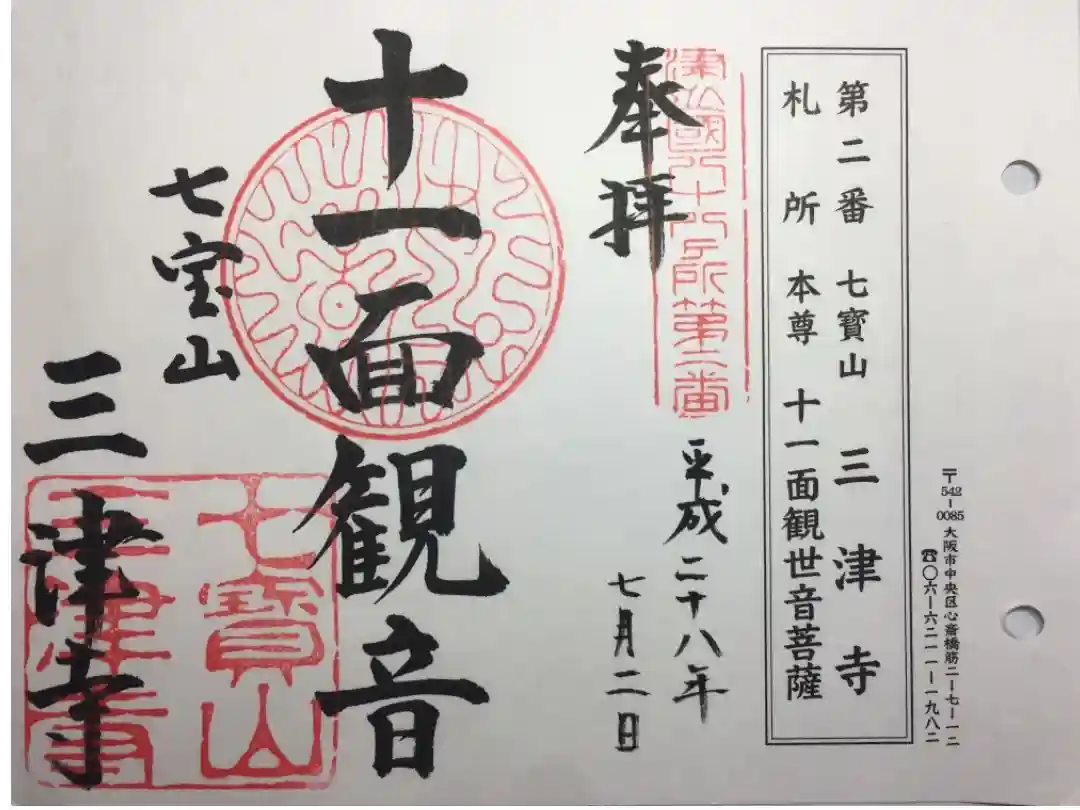 〒542-0085 大阪市中央区心斎橋筋二-七-一二
☎〇六-六二一一-一九八二
第二番 七寶山 三津寺
札所 本尊 十一面観世音菩薩
國八十八ヶ所第二番
奉拝
平成二十八年
七月二日
十一面観音
七宝山
三津寺
七寶山
三津寺